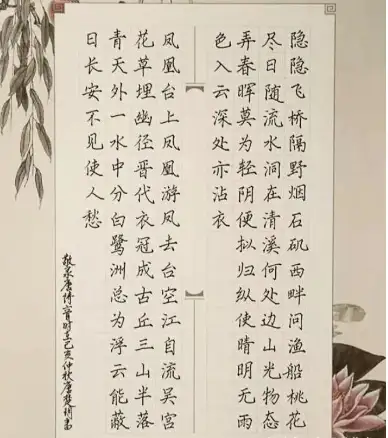 隐隐飞桥隔野烟石矶西畔问渔船桃花
尽日随流水洞在清溪何处边山光物态
弄春晖莫为轻阴便拟归纵使晴明无雨
色入云深处亦沾衣
凤凰台上凤凰游凤去台空江自流吴宫
花草埋幽径晋代衣冠成古丘三山半落
青天外一水中分白鹭洲总为浮云能蔽
日长安不见使人愁
敬录唐诗首时在己亥仲秋唐楚书